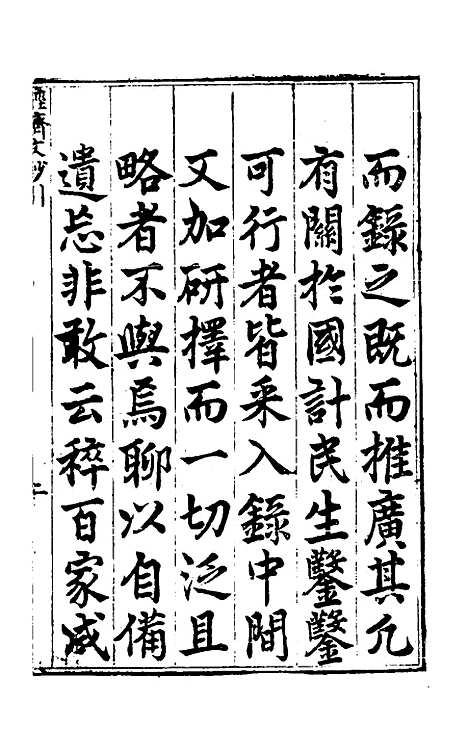 而錄之既而推廣其凡
有關於國計民生鑿鑿
可行者皆采入錄中間
又加硏擇而一切泛且
略者不與焉聊以自備
遺忘非敢云稡百家咸
經濟文鈔引
二